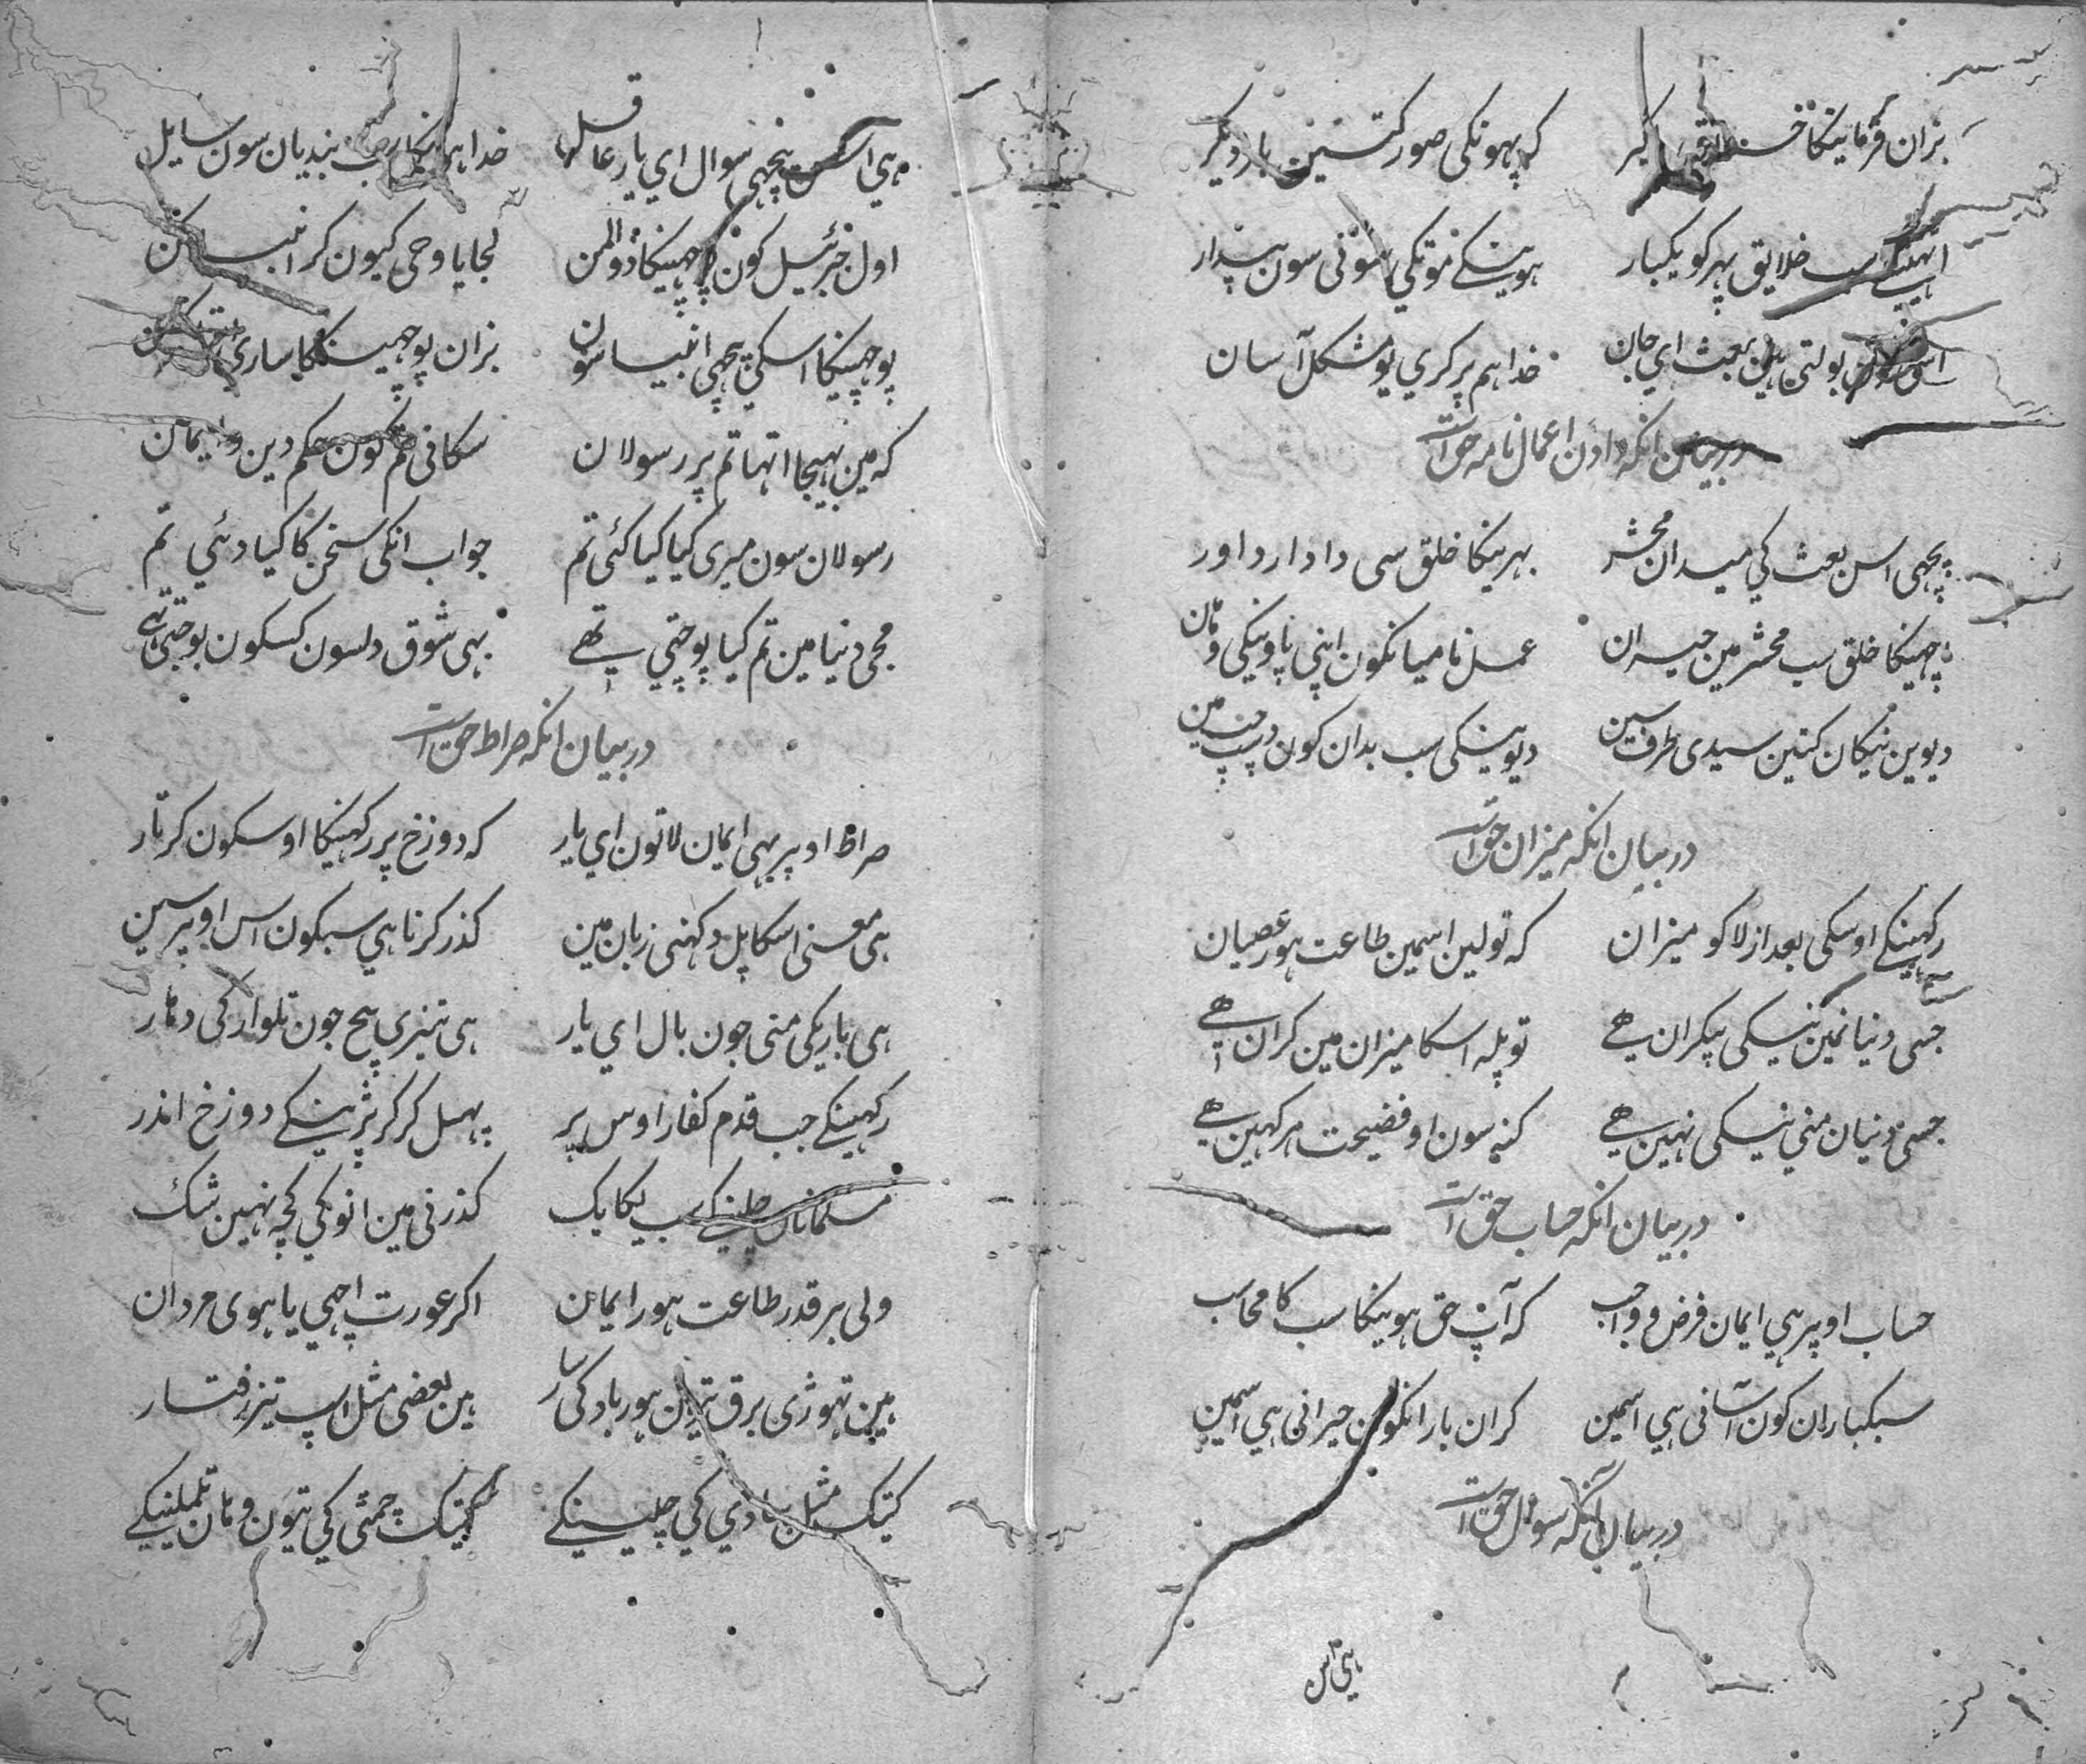 بزان فرمائیگا خدا اکبر کہ پهونکی صور کتسین بار دیگر
اتهینگے سب خلایق پهر کو یکبار هوینگے موتکی موتی سون بیدار
اس کون بولتی هین بعث اي جان خدا هم پر کري یو مشکل آسان
در بیان انکه دادن اعمال نامه حق است
پچهی اس بعث کي میدان محشر بهریگا خلق سی دادار داور
اچهیگا خلق سب محشر مین حیران عمل نامیانکون اپنی پاوینگی وهان
دیوین نیکان کتین سیدی طرف سین دیوینگی سب بدان کون دست چپ مین
در بیان انکه میزان حق است
رکهینگے اوسکی بعد از لاکو میزان که تولین اسمین طاعت هور عصیان
جسی دنیا مین نیکی بیکران هے تو پله اسکا میزان مین کران هے
جسی دنیان منی نیکی نهین هے کنه سون او فضیحت هر کهین هے
در بیان انکه حساب حق است
حساب اوپر هي ایمان فرض و واجب که آپ حق هویگا سب کا محاسب
سبکباران کون آسانی هي اسمین کران بارانکون حیرانی هي اسمین
در بیان آنکه سوال حق است
هی اس
هي اس پچهی سوال اي یار عاقل خدا هم کا سب بندیان سون سایل
اول جبرئیل کون پوچهیگا ذو المن لجایا وحی کیون کر انبیا کن
پوچهیگا اسکی پچهی انبیا سون بزان پوچهیگا ساري
که مین بهیجا اتها تم پر رسولان سکانی تم کون حکم دین و ایمان
رسولان سون میری کیا کیا کئی تم جواب انکی سخن کا کیا دئي تم
مجی دنیا مین تم کیا پوجتی تهے بهی شوق دلسون کسکون پوجتی تهے
در بیان انکه صراط حق است
صراط اوپر بهی ایمان لا تون اي یار که دوزخ پر رکهیگا اوسکون کرتار
هی معنی اسکا پل دکهنی زبان مین کذر کرنا هي سبکون اس اوپر سین
هی باریکی منی جون بال اي یار هی تیزي بیچ جون تلوار کی دهار
رکهینگے جب قدم کفار اوس پر پهسل کر کر پڑینگے دوزخ اندر
مسلمانان چلینگے سب یکایک کذرنی مین انو کي کچه نهین شک
ولی بر قدر طاعت هور ایمان اکر عورت اچهي یا هوی مردان
هین تهوڑی برق هور باد کی سار هین بعضی مثل اسپ تیز رفتار
کیتک مثل پیادي کي چلینگے کیتک چمٹی کي تیون وهان تلملینگے